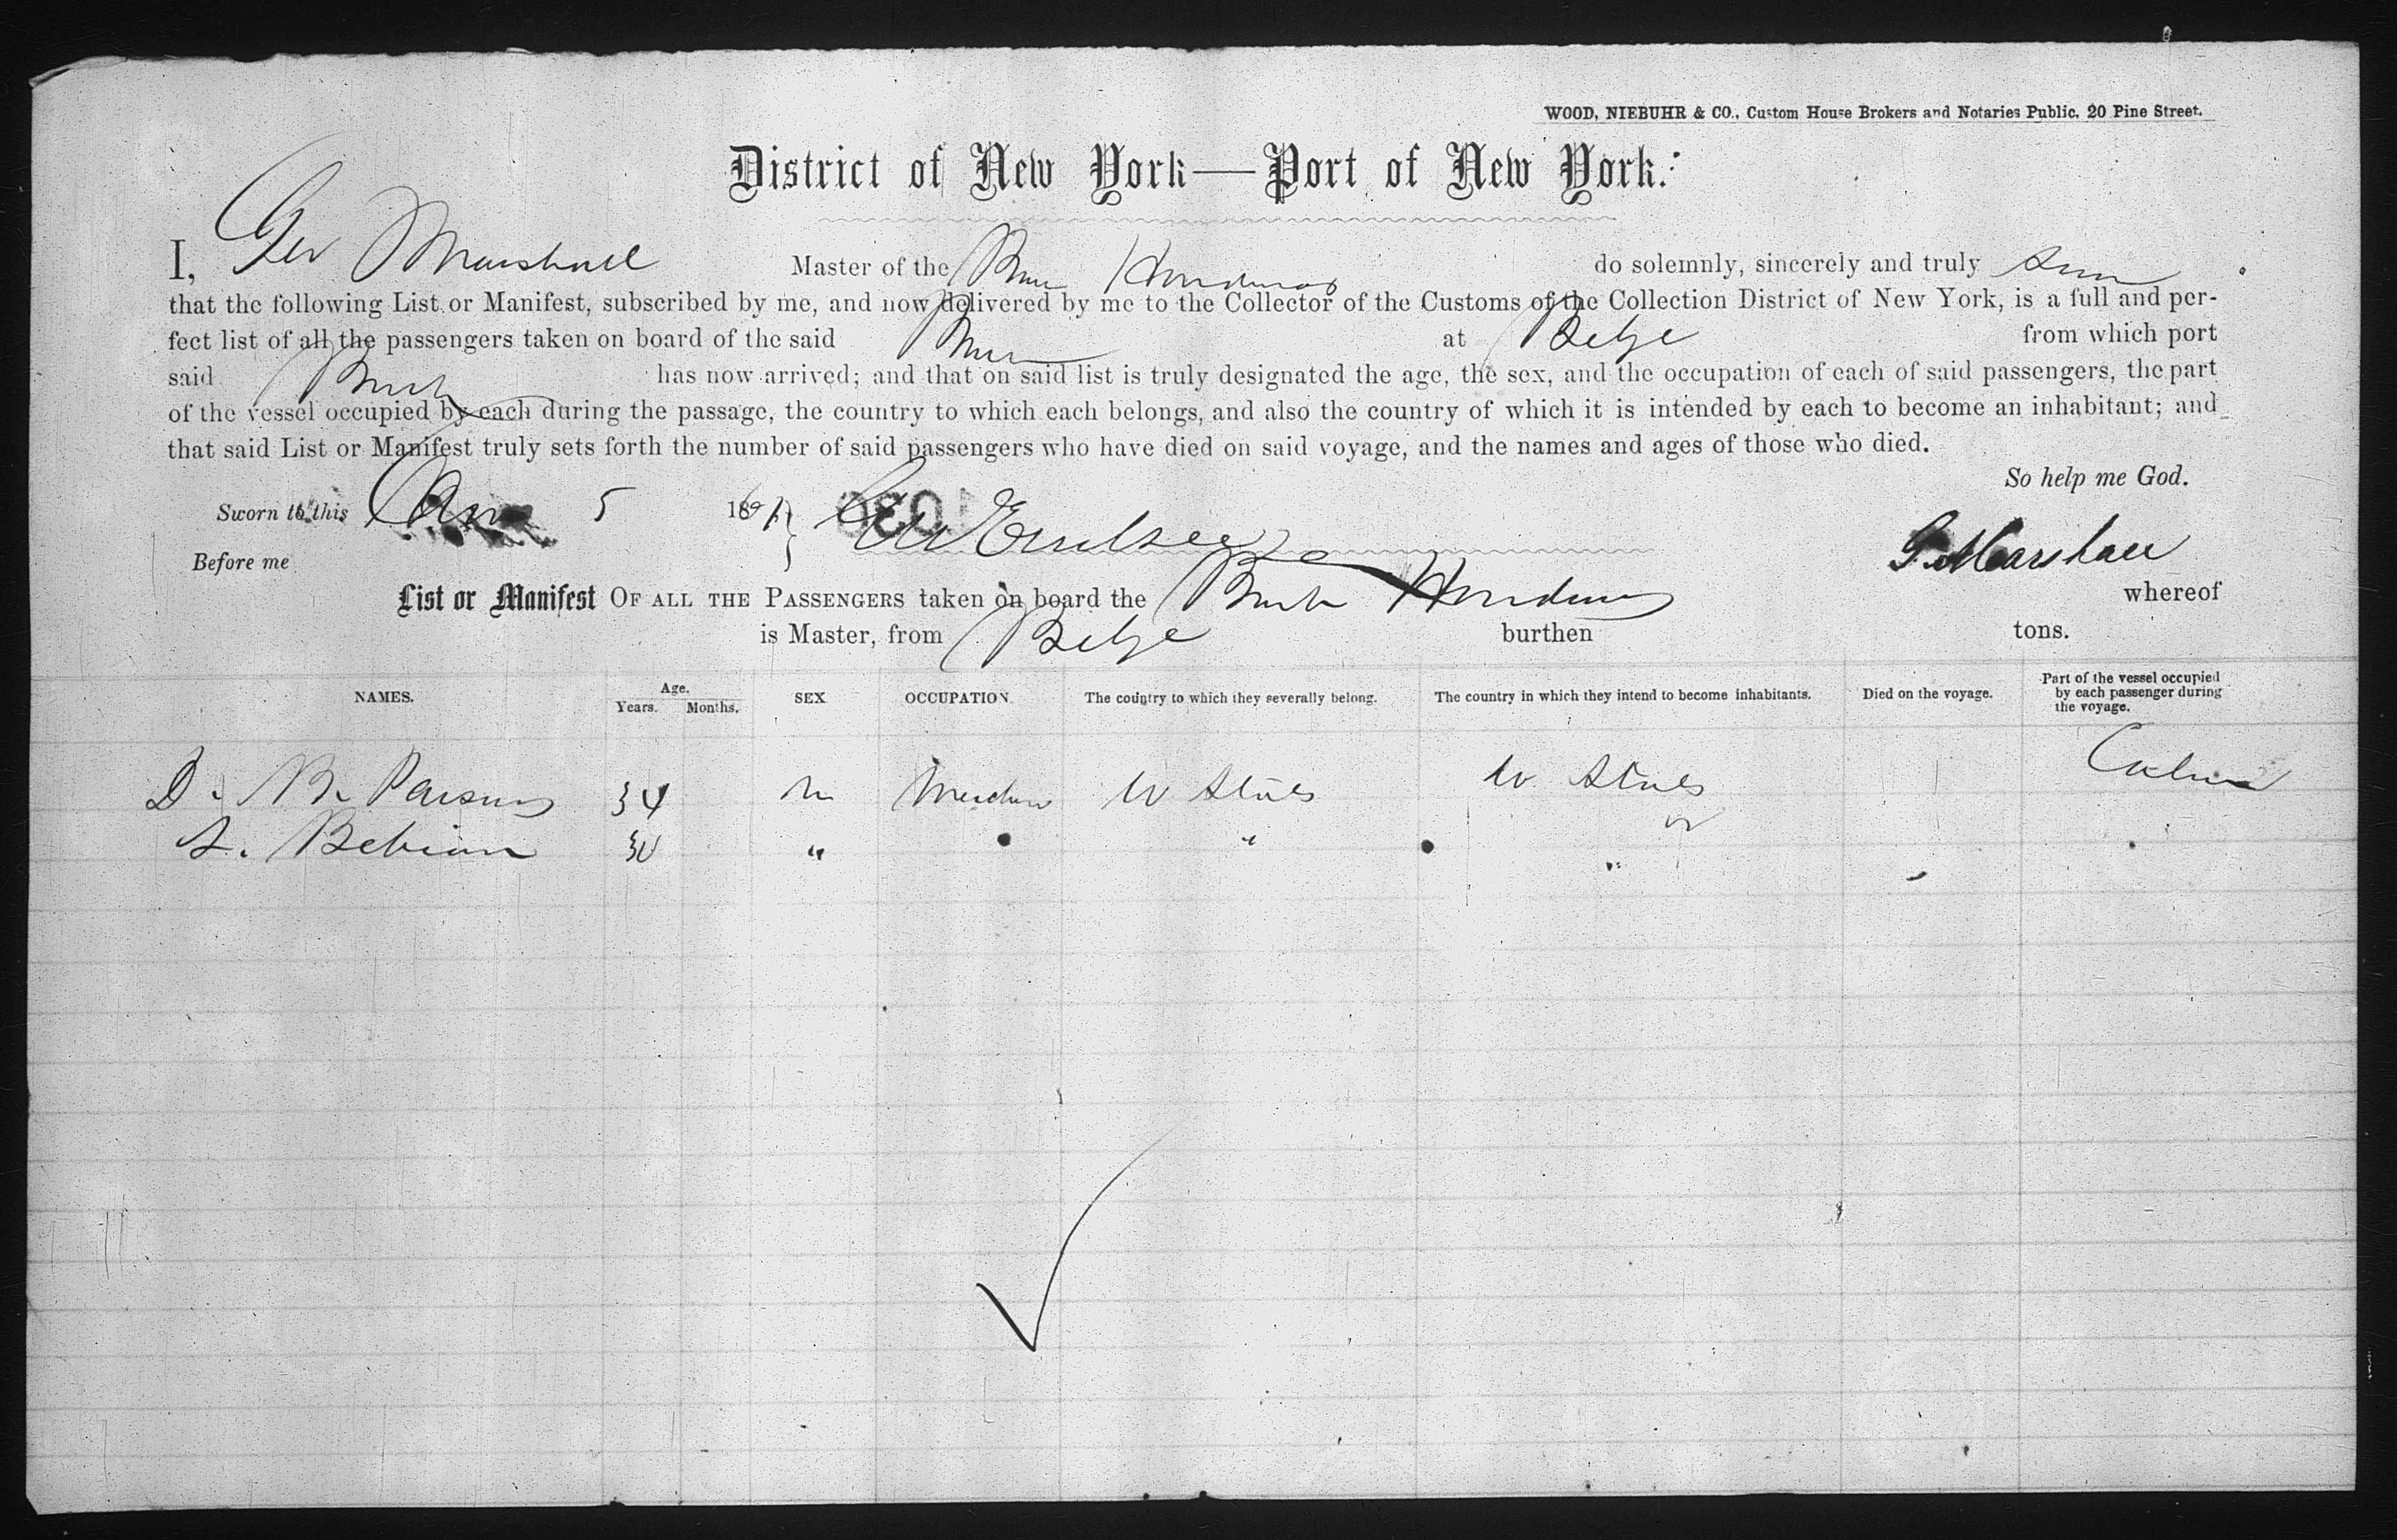 WOOD, NIEBUHR & CO., Custom House Brokers and Notaries Public, 20 Pine Street.
District of New York—Port of New York.
I, Geo Marshall Master of the Honduras do solemnly, sincerely and truly
that the following List or Manifest, subscribed by me, and now delivered by me to the Collector of the Customs of the Collection District of New York, is a full and per-
fect list of all the passengers taken on board of the said at Belize from which port
said has now arrived; and that on said list is truly designated the age, the sex, and the occupation of each of said passengers, the part
of the vessel occupied by each during the passage, the country to which each belongs, and also the country of which it is intended by each to become an inhabitant; and
that said List or Manifest truly sets forth the number of said passengers who have died on said voyage, and the names and ages of those who died.
So help me God.
Sworn to this 5 186
Before me
G. Marshall
List or Manifest OF ALL THE PASSENGERS taken on board the Honduras whereof
is Master, from Belize burthen tons.
NAMES. Age. Years. Months. SEX OCCUPATION. The country to which they severally belong. The country in which they intend to become inhabitants. Died on the voyage. Part of the vessel occupied by each passenger during the voyage.
D. B. Parsons 34 m U States U States Cabin
Bebian 30 " " "